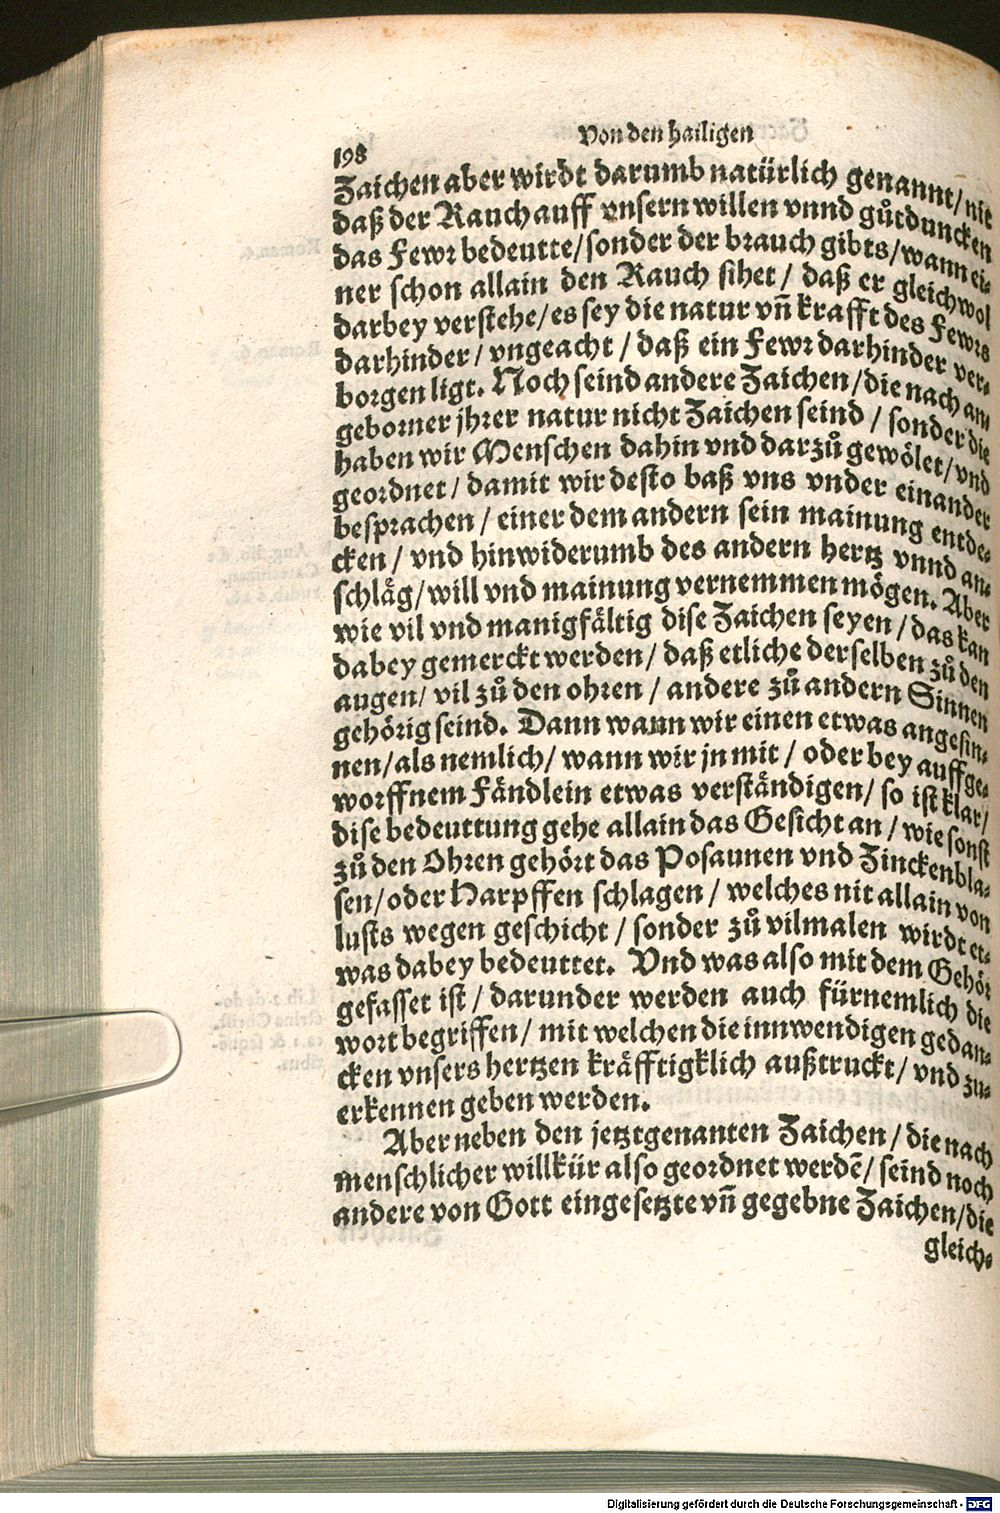 Von den hailigen
198
Zaichen aber wirdt darumb natürlich genannt/ nit
daß der Rauch auff vnsern willen vnnd gůtduncken
das Fewr bedeutte/ sonder der brauch gibts/ wann ei-
ner schon allain den Rauch sihet/ daß er gleichwol
darbey verstehe/ es sey die natur vn̄ krafft des Fewrs
darhinder/ vngeacht/ daß ein Fewr darhinder ver-
borgen ligt. Noch seind andere Zaichen/ die nach an-
geborner jhrer natur nicht Zaichen seind/ sonder die
haben wir Menschen dahin vnd darzů gewölet/ vnd
geordnet/ damit wir desto baß vns vnder einander
besprachen/ einer dem andern sein mainung entde-
cken/ vnd hinwiderumb des andern hertz vnnd an-
schläg/ will vnd mainung vernemmen mögen. Aber
wie vil vnd manigfältig dise Zaichen seyen/ das kan
dabey gemerckt werden/ daß etliche derselben zů den
augen/ vil zů den ohren/ andere zů andern Sinnen
gehörig seind. Dann wann wir einen etwas angesin-
nen/ als nemlich/ wann wir jn mit/ oder bey auffge-
worffnem Fändlein etwas verständigen/ so ist klar/
dise bedeuttung gehe allain das Gesicht an/ wie sonst
zů den Ohren gehört das Posaunen vnd Zinckenbla-
sen/ oder Harpffen schlagen/ welches nit allain von
lusts wegen geschicht/ sonder zů vilmalen wirdt et-
was dabey bedeuttet. Vnd was also mit dem Gehör
gefasset ist/ darunder werden auch fürnemlich die
wort begriffen/ mit welchen die innwendigen gedan-
cken vnsers hertzen kräfftigklich außtruckt/ vnd zu-
erkennen geben werden.
Aber neben den jetztgenanten Zaichen/ die nach
menschlicher willkür also geordnet werdē/ seind noch
andere von Gott eingesetzte vn̄ gegebne Zaichen/ die
gleich-
Digitalisierung gefördert durch die Deutsche Forschungsgemeinschaft - DFG